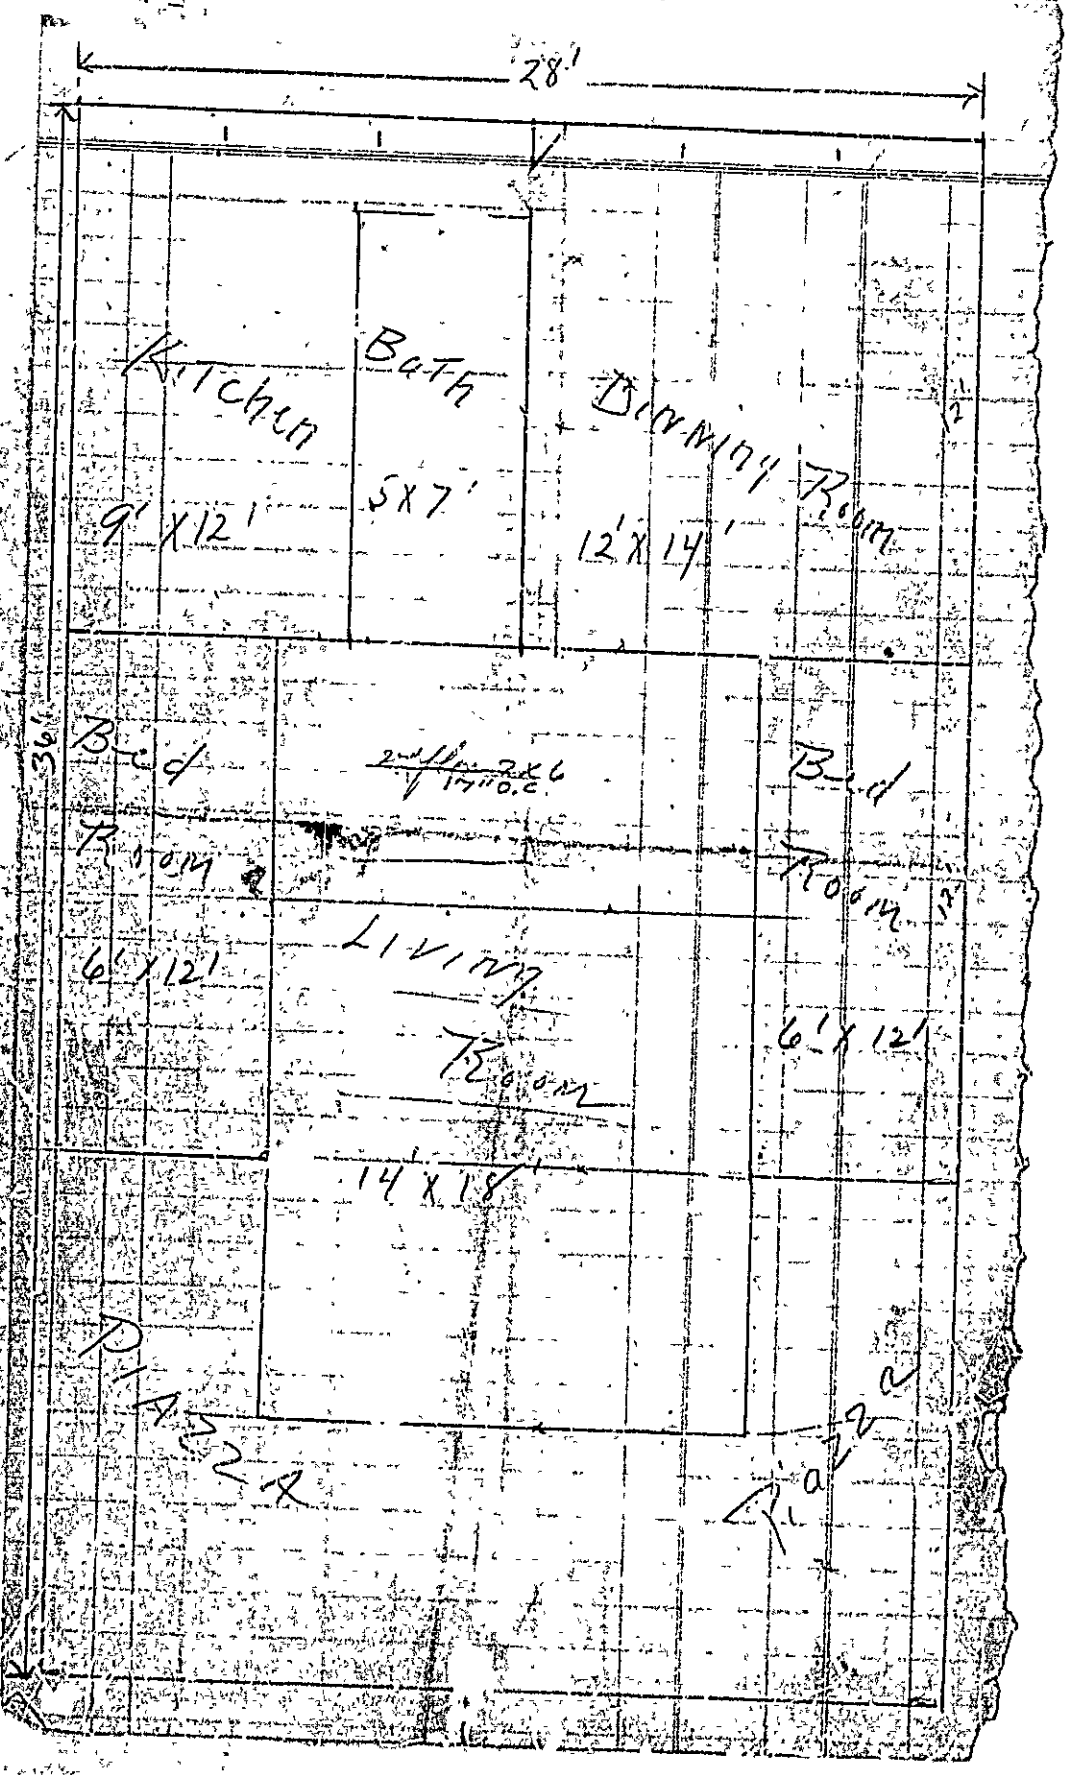 28'
Kitchen
9' X 12'
Bath
5 X 7'
Dinning Room
12' X 14'
12'
36'
Bed
Room
6' X 12'
2nd flr. 2X6
17" O.C.
Bed
Room
12'
6' X 12'
Living
Room
14' X 18'
Piazza
Piazza